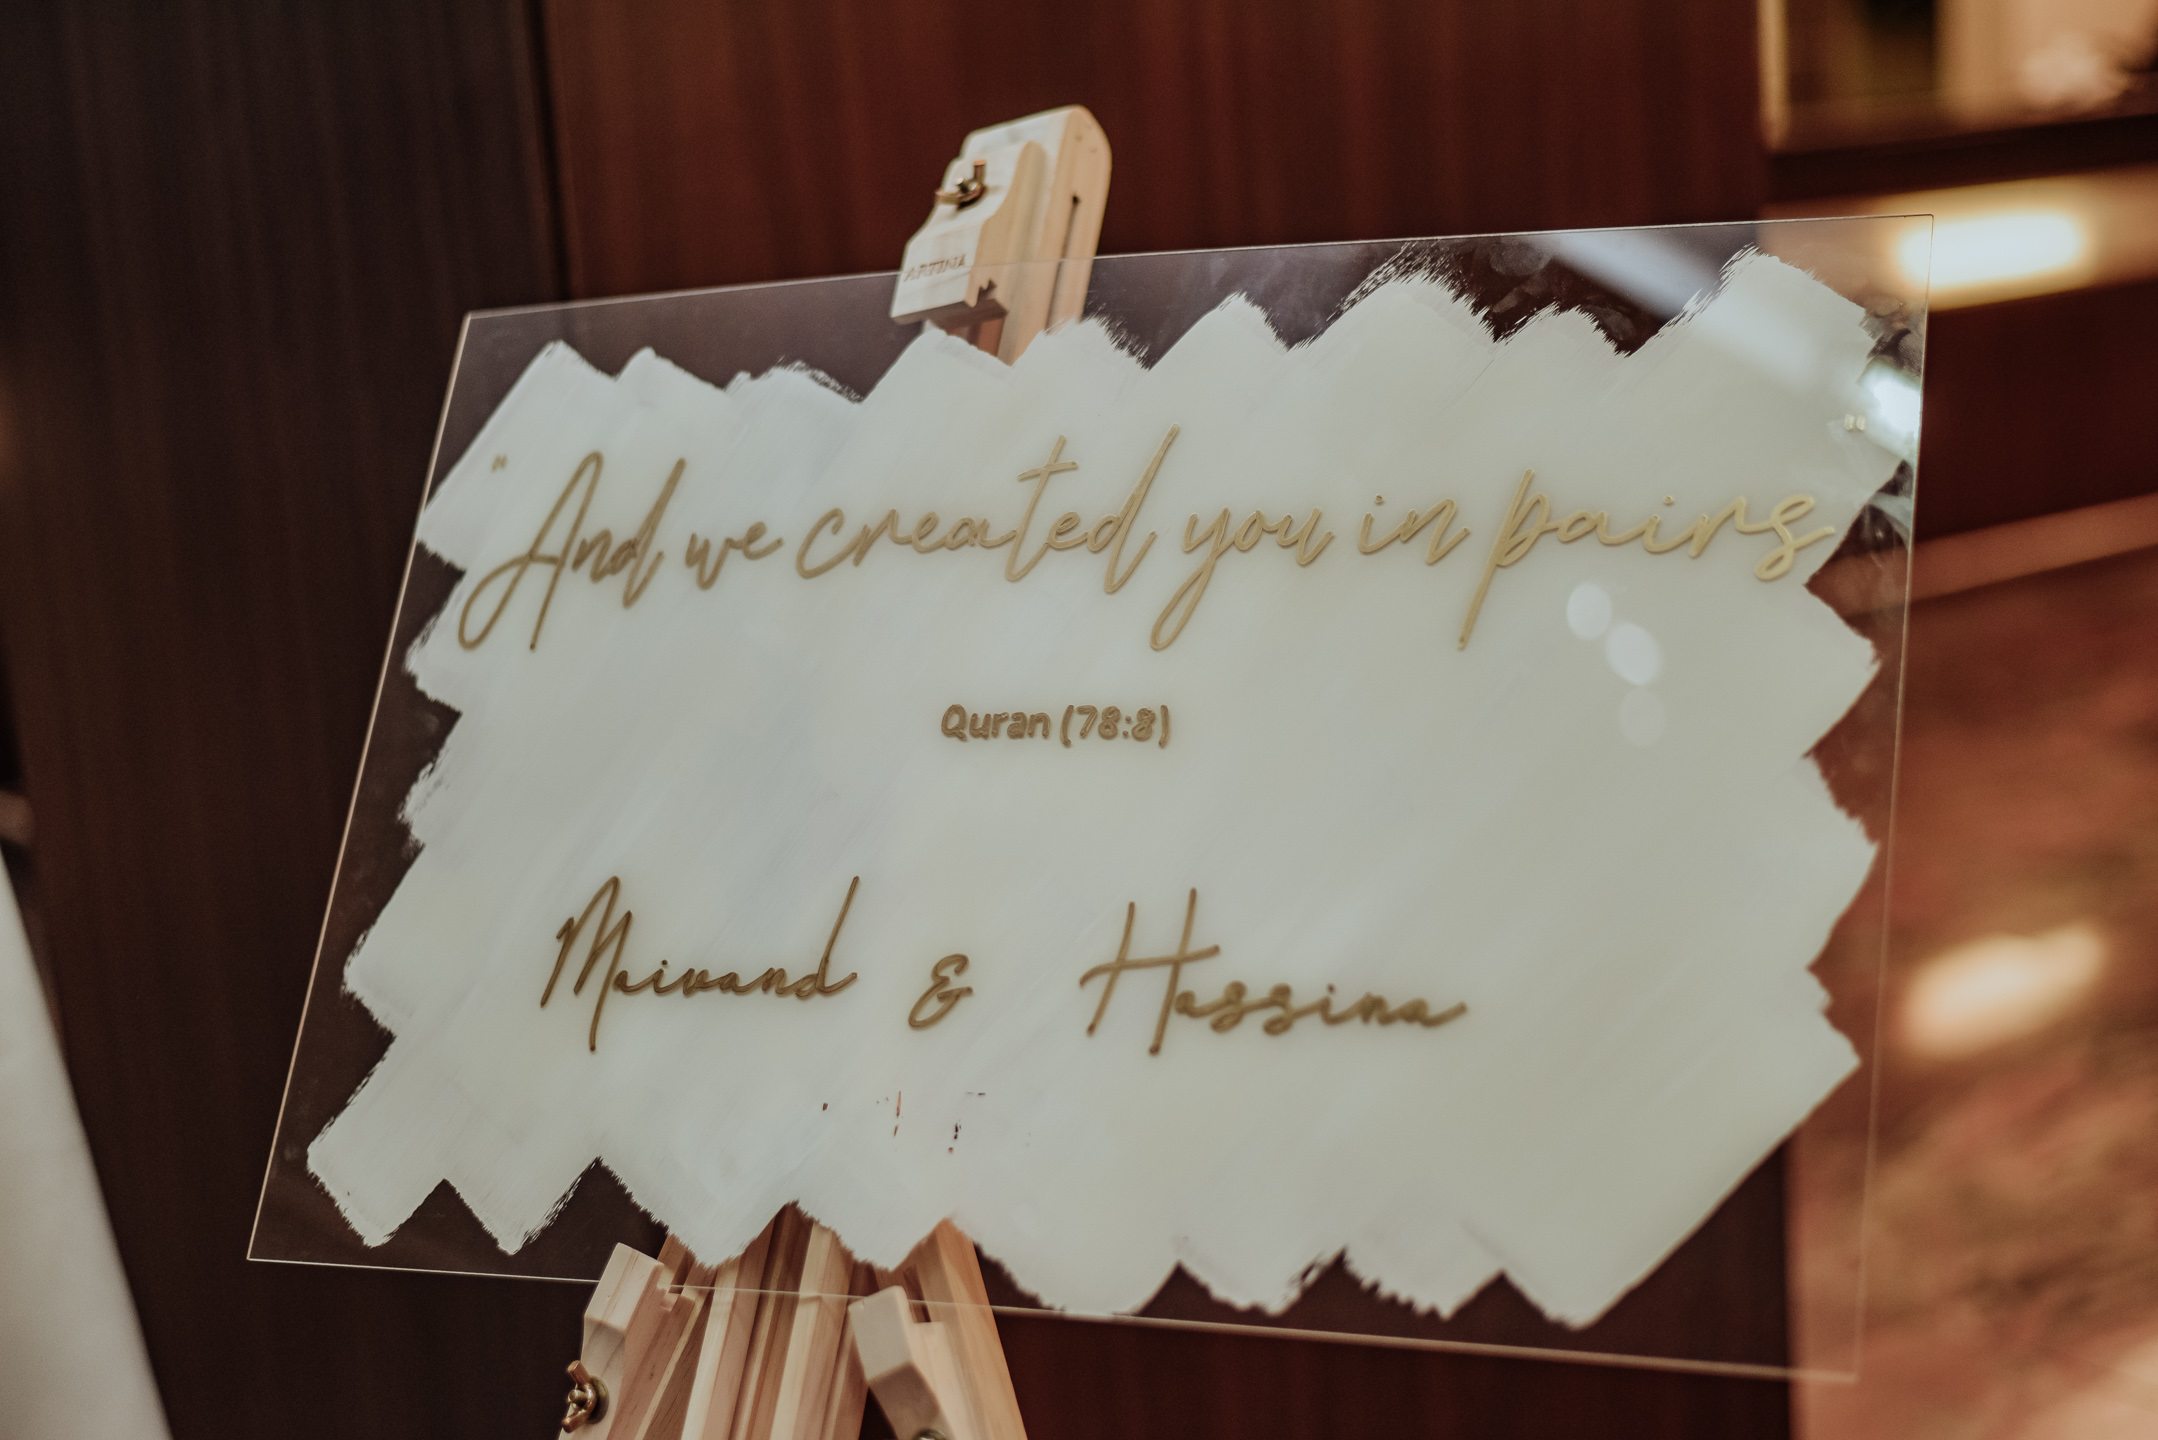 ARTINA
"And we created you in pairs"
Quran (78:8)
Maivand & Hassina